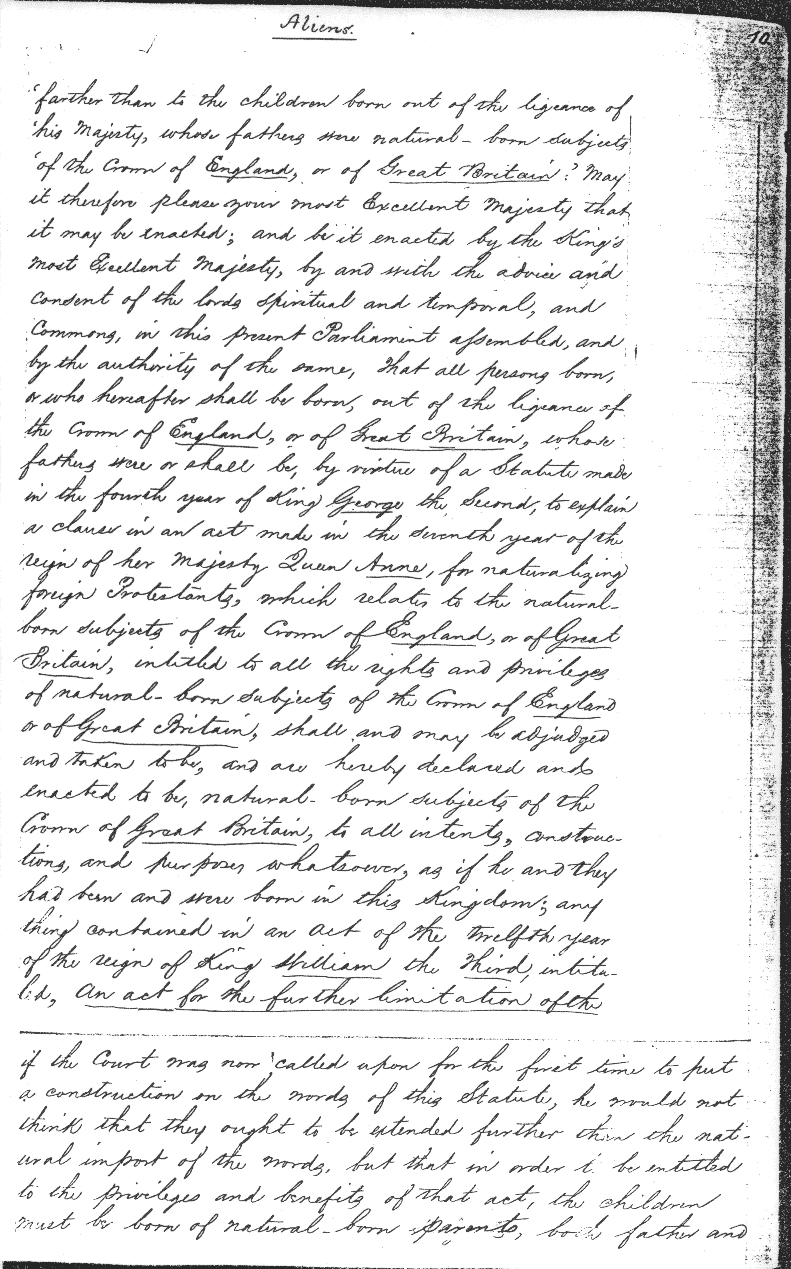 Aliens.
10
'farther than to the children born out of the ligeance of
'his Majesty, whose fathers were natural-born subjects
'of the Crown of England, or of Great Britain: May
it therefore please your most Excellent Majesty that
it may be enacted; and be it enacted by the King's
most Excellent Majesty, by and with the advice and
consent of the lords spiritual and temporal, and
Commons, in this present Parliament assembled, and
by the authority of the same, That all persons born,
or who hereafter shall be born, out of the ligeance of
the Crown of England, or of Great Britain, whose
fathers were or shall be, by virtue of a Statute made
in the fourth year of King George the Second, to explain
a clause in an act made in the seventh year of the
reign of her Majesty Queen Anne, for naturalizing
foreign Protestants, which relates to the natural-
born subjects of the Crown of England, or of Great
Britain, intitled to all the rights and privileges
of natural-born subjects of the Crown of England
or of Great Britain, shall and may be adjudged
and taken to be, and are hereby declared and
enacted to be, natural-born subjects of the
Crown of Great Britain, to all intents, construc-
tions, and purposes whatsoever, as if he and they
had been and were born in this Kingdom; any
thing contained in an act of the twelfth year
of the reign of King William the Third, intitu-
led, An act for the further limitation of the
if the Court was now called upon for the first time to put
a construction on the words of this Statute, he would not
think that they ought to be extended further than the nat-
ural import of the words, but that in order to be entitled
to the privileges and benefits of that act, the children
must be born of natural-born parents, both father and